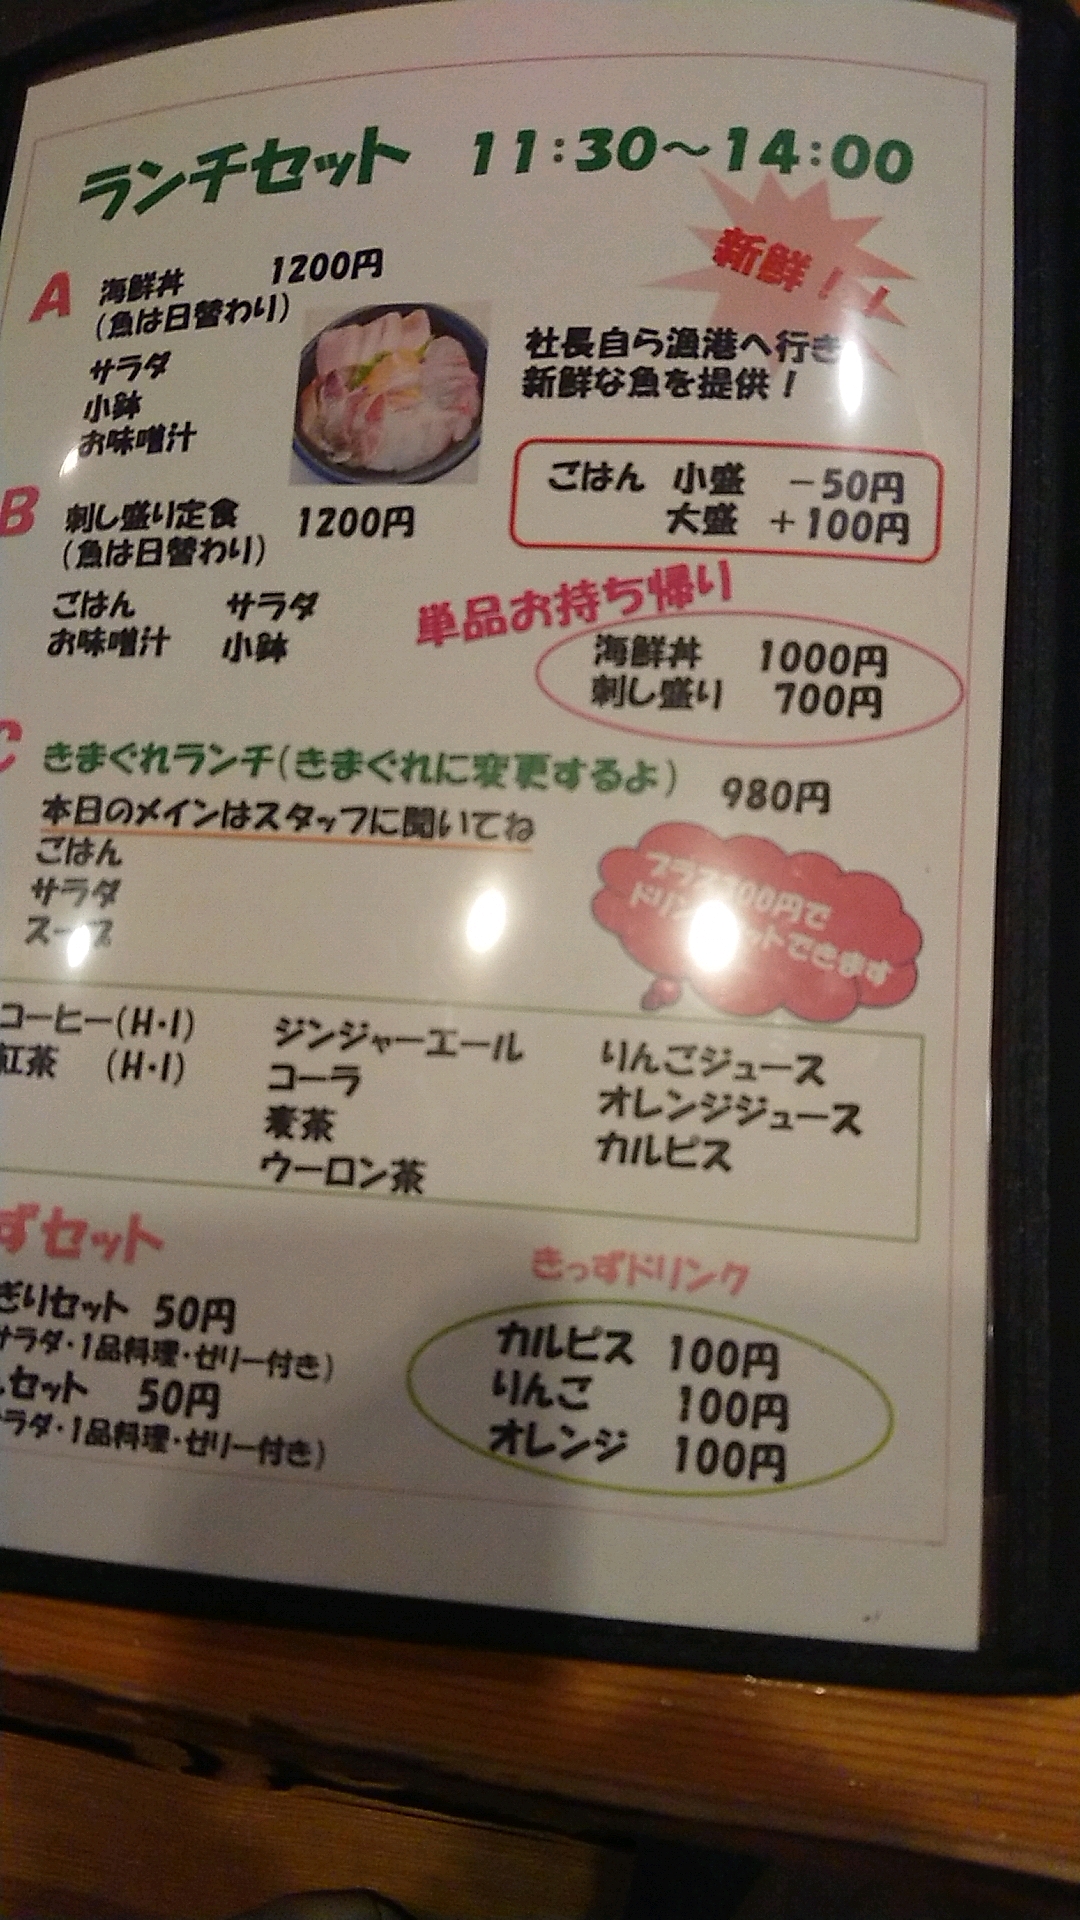 ランチセット 11:30～14:00
新鮮！！
A 海鮮丼 1200円
(魚は日替わり)
サラダ
小鉢
お味噌汁
社長自ら漁港へ行き
新鮮な魚を提供！
ごはん 小盛 －50円
大盛 ＋100円
B 刺し盛り定食 1200円
(魚は日替わり)
ごはん サラダ
お味噌汁 小鉢
単品お持ち帰り
海鮮丼 1000円
刺し盛り 700円
C きまぐれランチ(きまぐれに変更するよ) 980円
本日のメインはスタッフに聞いてね
ごはん
サラダ
スープ
プラス100円で
できます
コーヒー(H・I)
紅茶 (H・I)
ジンジャーエール
コーラ
麦茶
ウーロン茶
りんごジュース
オレンジジュース
カルピス
ずセット
ぎりセット 50円
サラダ・1品料理・ゼリー付き)
セット 50円
ラダ・1品料理・ゼリー付き)
きっずドリンク
カルピス 100円
りんご 100円
オレンジ 100円